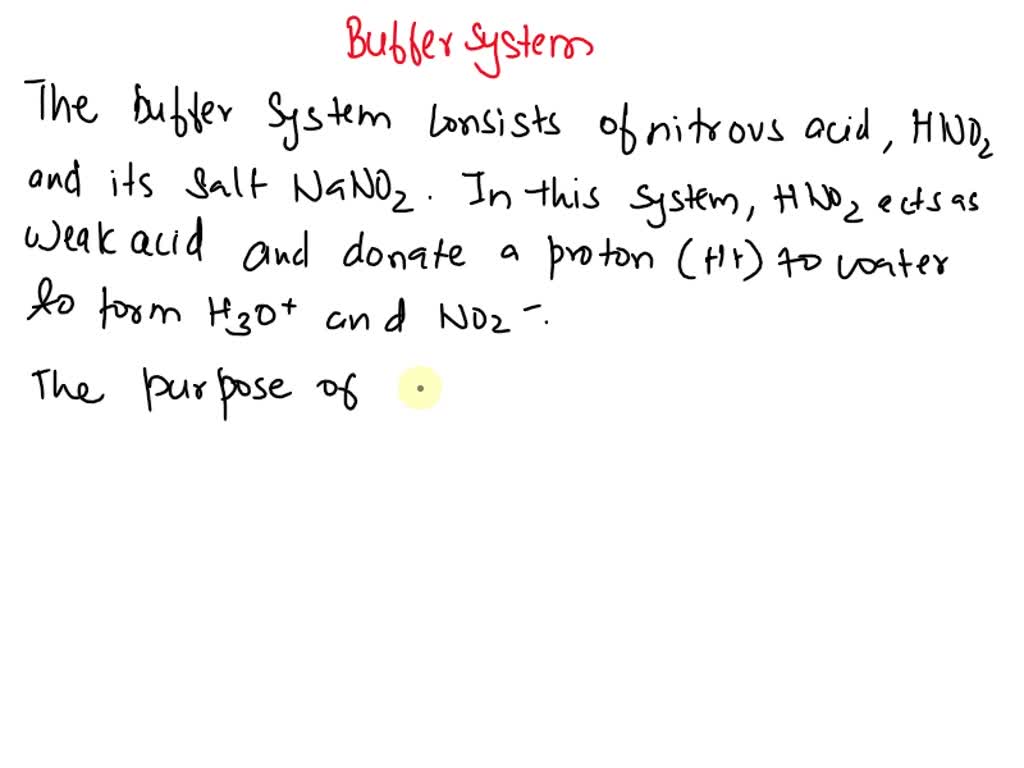 Buffer System
The buffer system consists of nitrous acid, HNO2
and its salt NaNO2. In this system, HNO2 ects as
weak acid and donate a proton (H+) to water
to form H3O+ and NO2-.
The purpose of